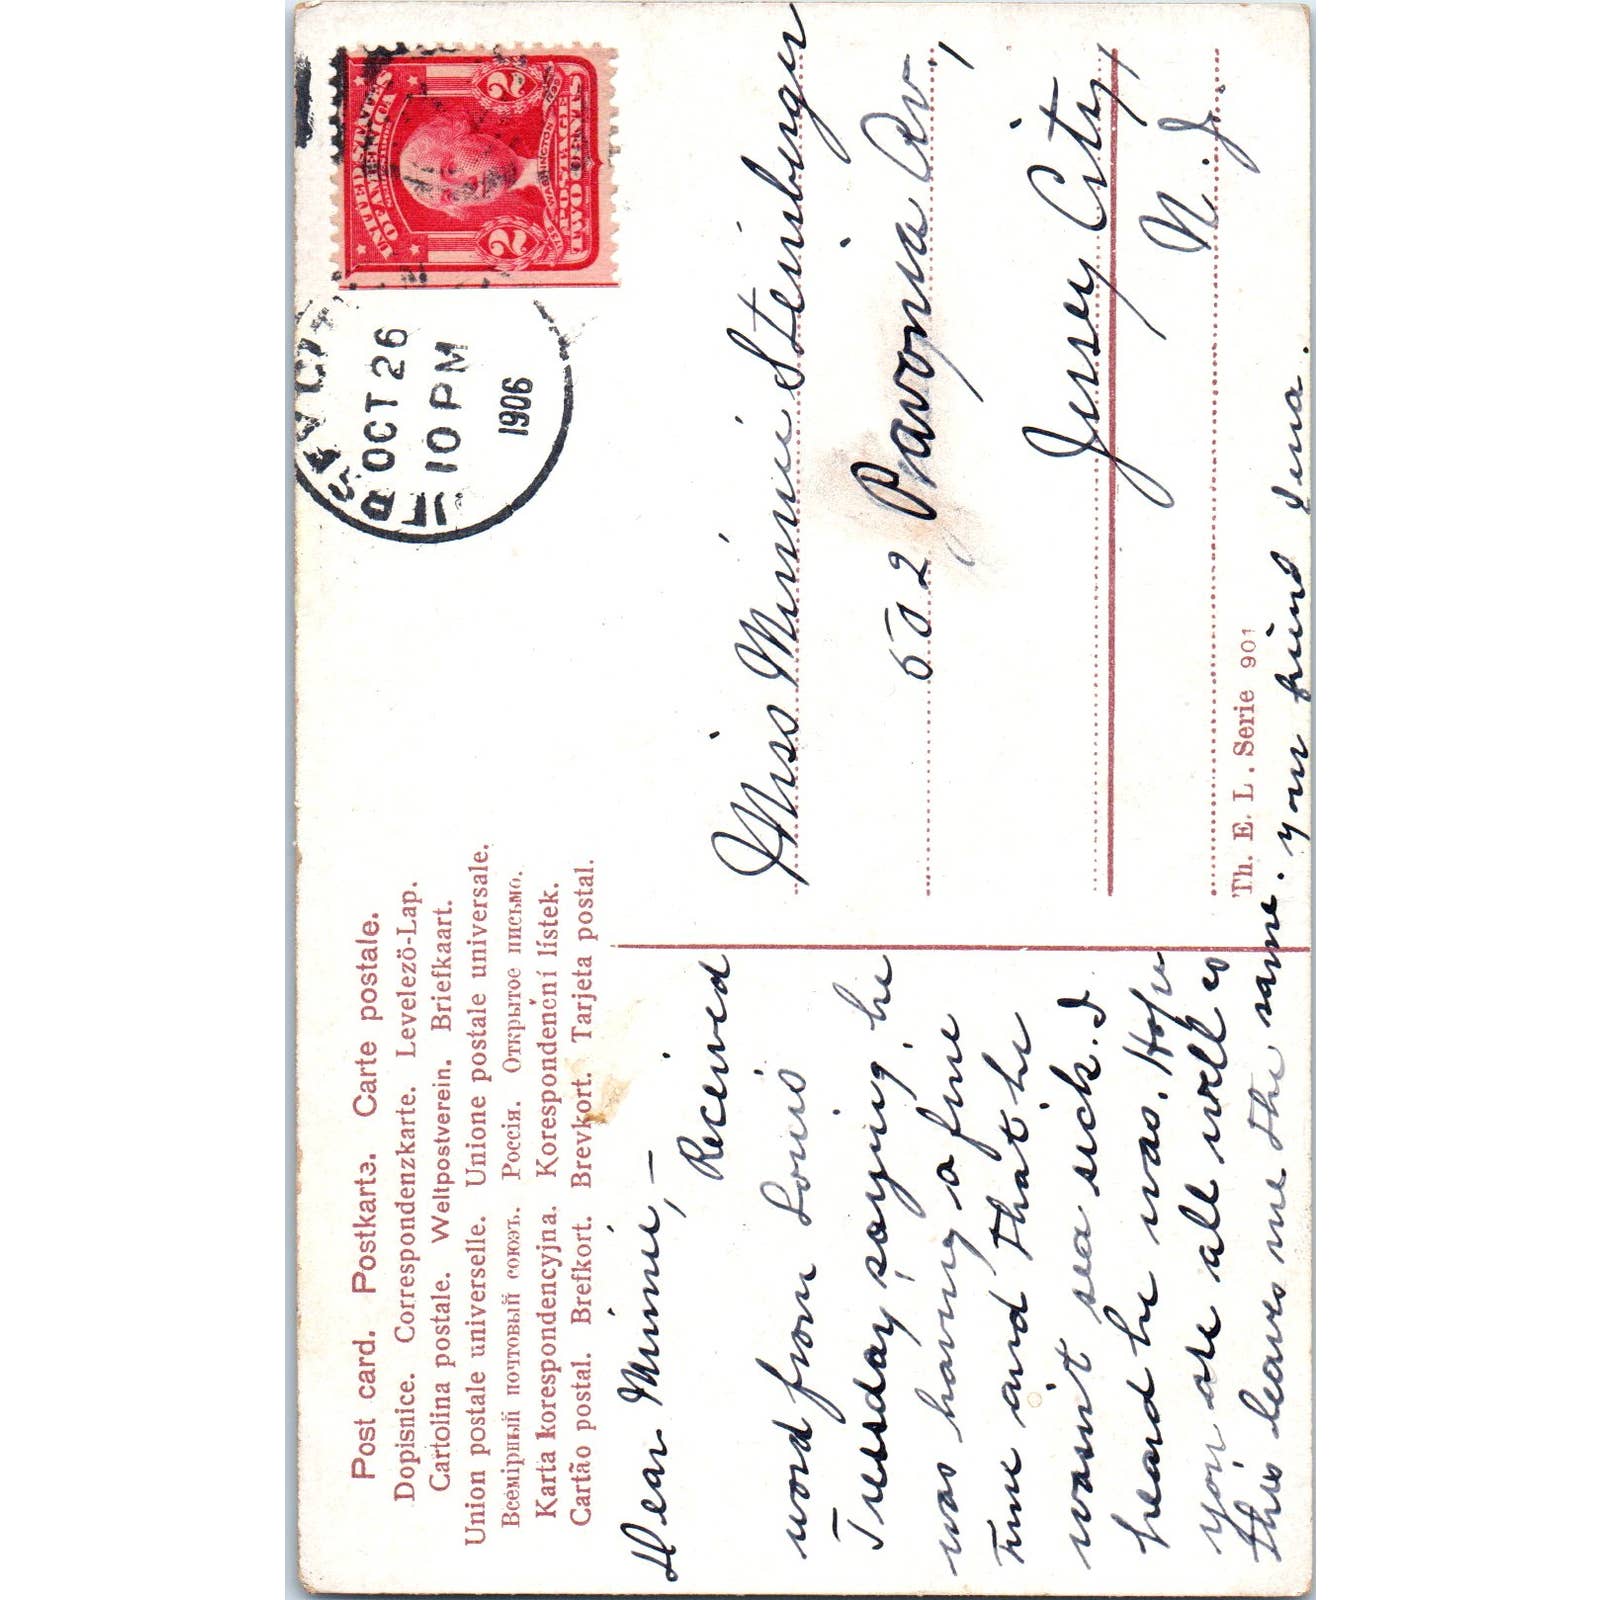 Post card. Postkarte. Carte postale.
Dopisnice. Correspondenzkarte. Levelező-Lap.
Cartolina postale. Weltpostverein. Briefkaart.
Union postale universelle. Unione postale universale.
Всемірный почтовый союзъ. Россія. Открытое письмо.
Karta korespondencyjna. Korespondenční lístek.
Cartão postal. Brefkort. Brevkort. Tarjeta postal.
Dear Minnie,—
Received
word from Louis
Tuesday, saying, he
was having a fine
time and that he
wasn't sea sick. I
heard he was. Hope
you are all well as
this leaves me the same. your friend Lena.
JERSEY CITY
OCT 26
10 PM
1906
UNITED STATES
OF AMERICA
2 2
1732 WASHINGTON 1799
POSTAGE
TWO CENTS
Miss Minnie Steinberger
502 Pavonia Av.,
Jersey City,
N. J.
Th. E. L. Serie 901